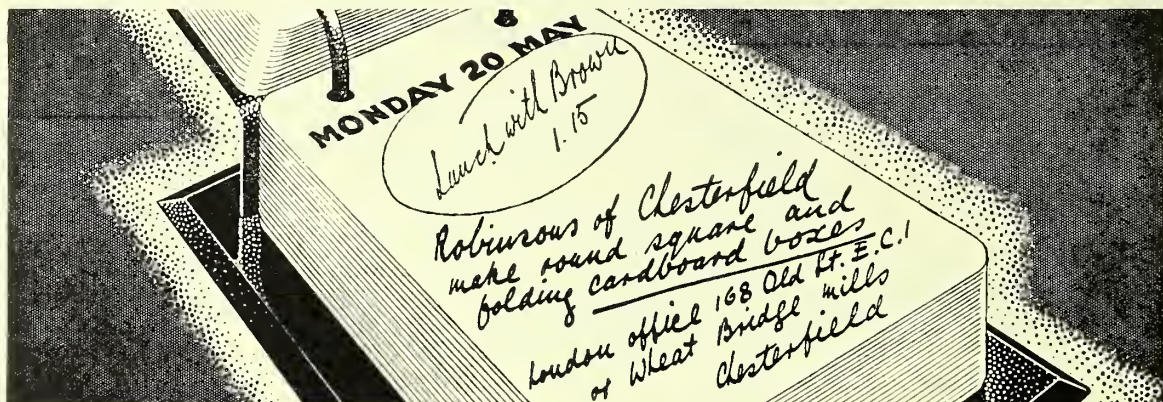 MONDAY 20 MAY
Lunch with Brown
1.15
Robinsons of Chesterfield
make round square and
folding cardboard boxes
London office 168 Old St. E.C.1
or Wheat Bridge mills
Chesterfield